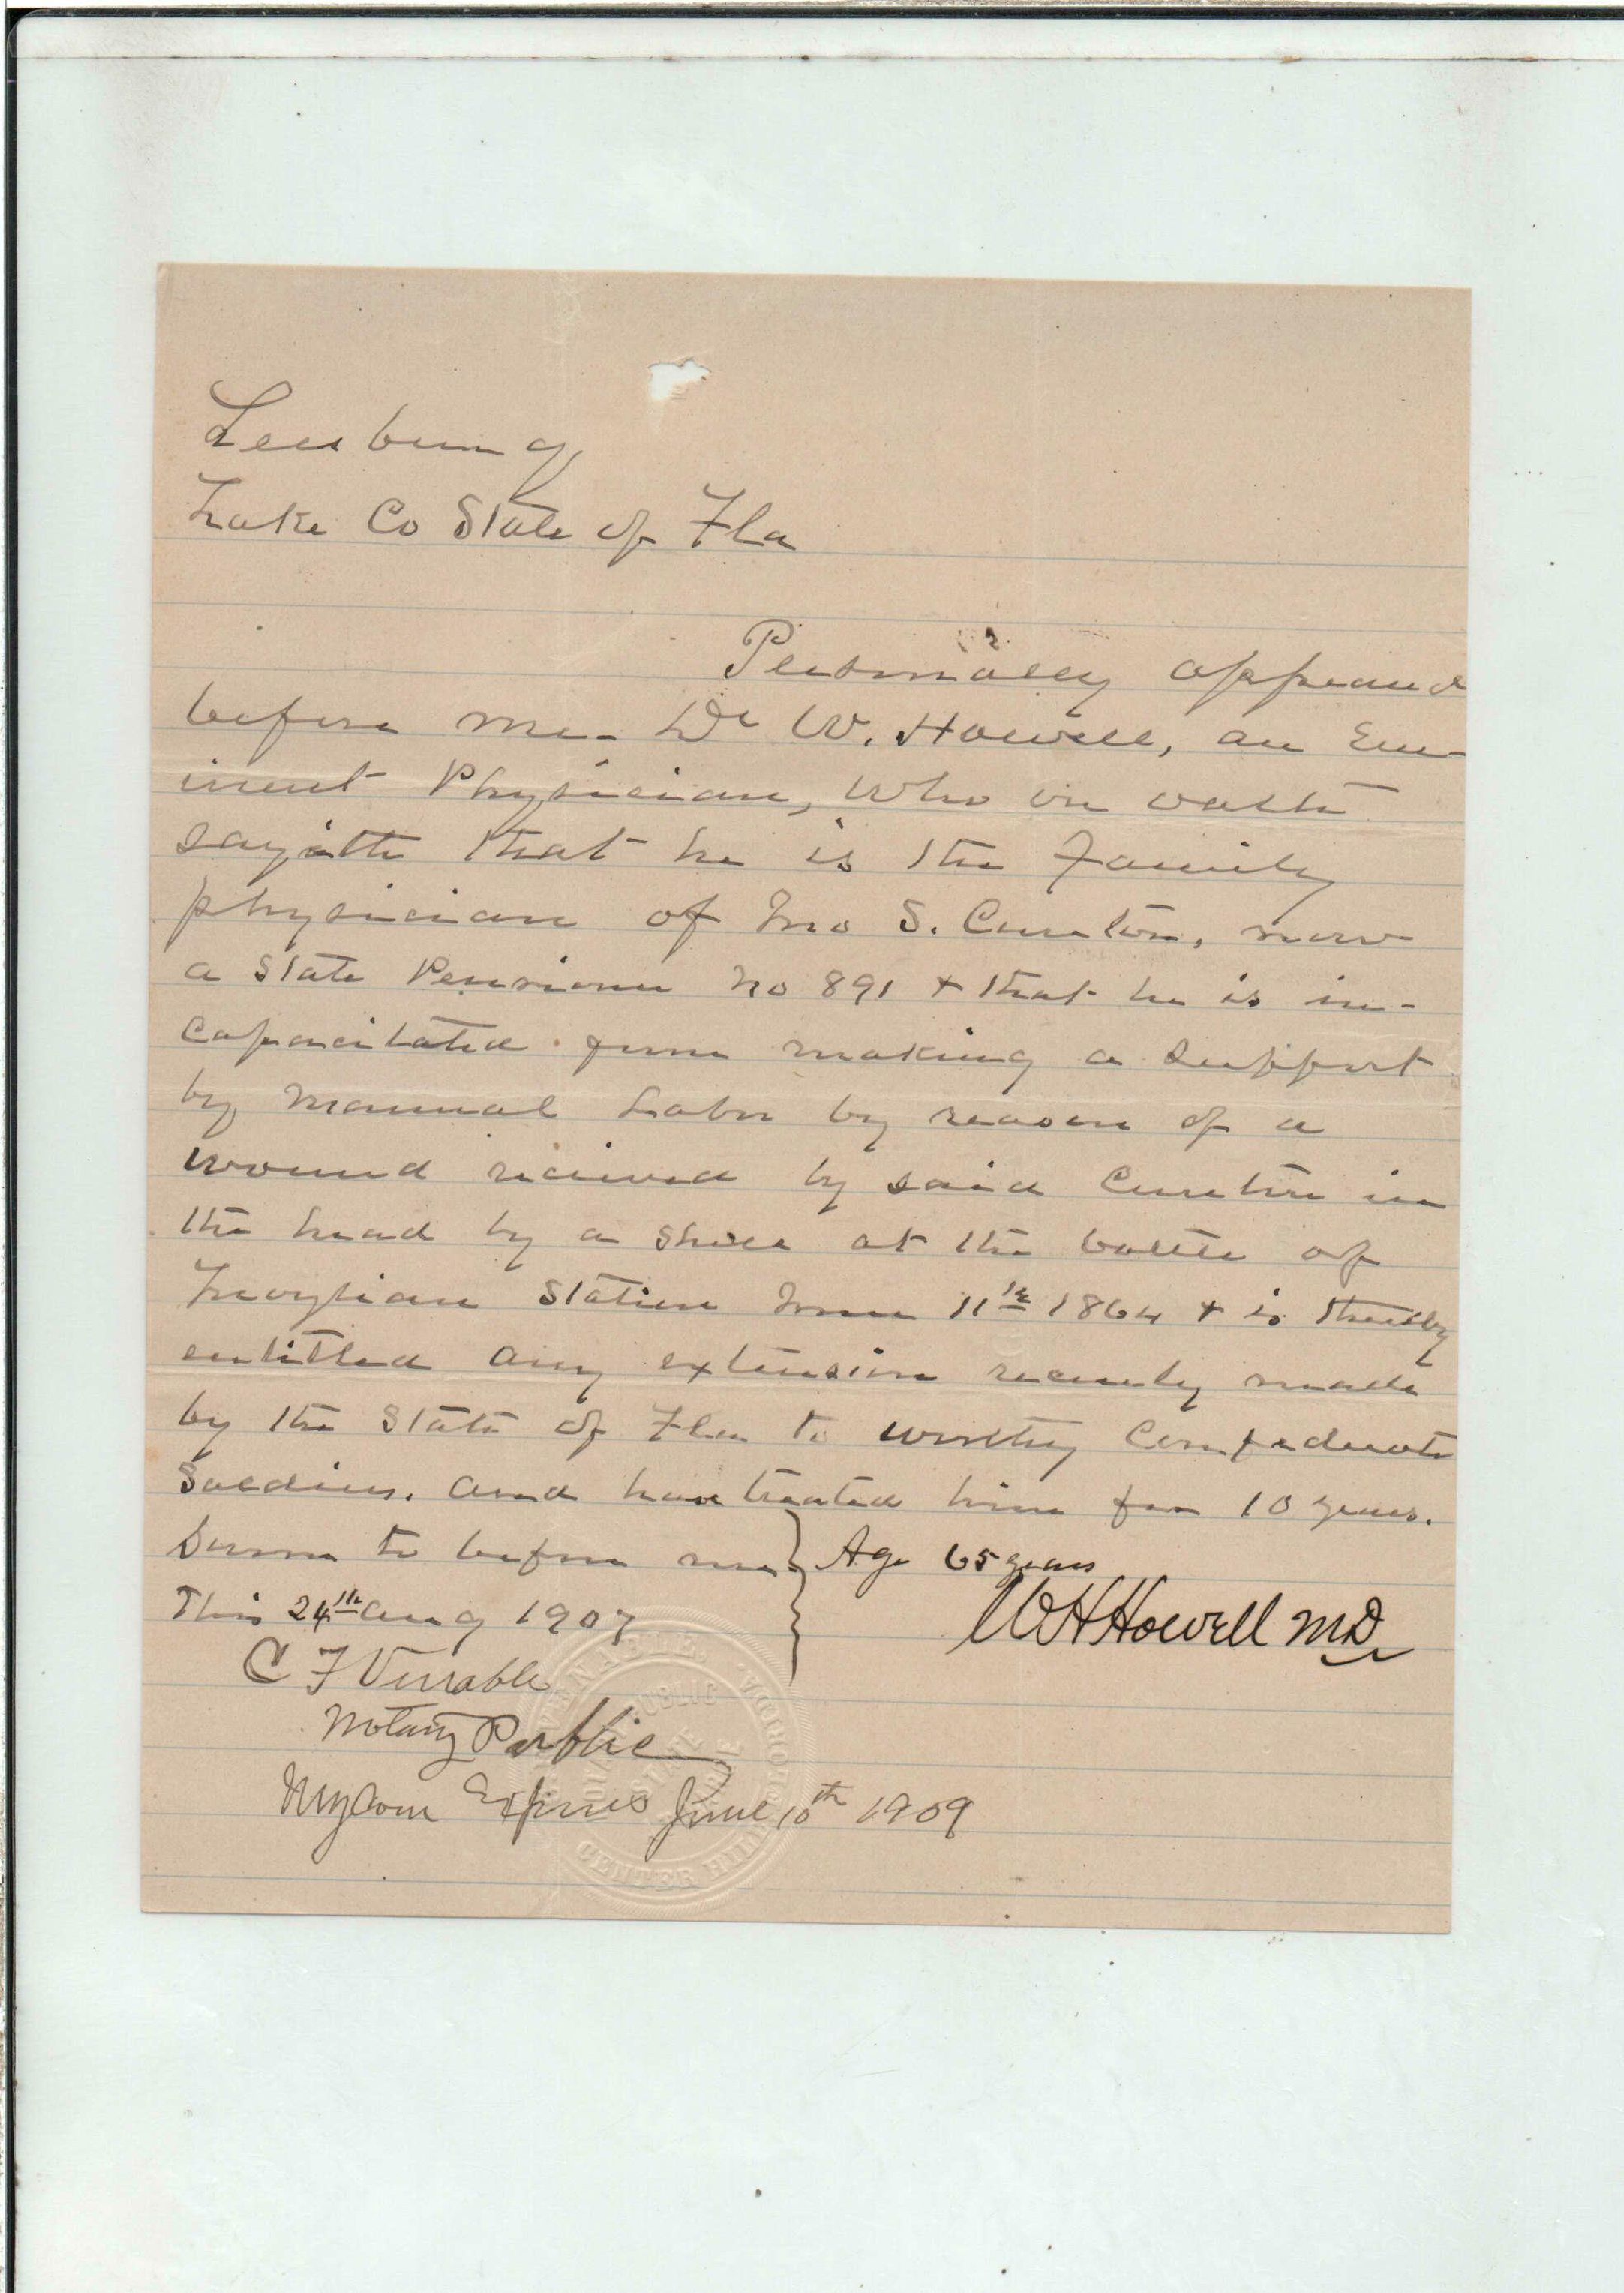 Leesburg
Lake Co State of Fla
Personally appeared
before me - Dr W. Howell, an Em-
inent Physician, Who on oath
sayith that he is the Family
physician of Jno S. Cureton, now
a State Pensioner No 891 + that he is in-
capacitated from making a support
by Manual Labor by reason of a
wound recieved by said Cureton in
the head by a shell at the battle of
Station June 11th 1864 + is thereby
entitled any extension recently made
by the State of Fla to worthy Confederate
Soldiers. and have treated him for 10 years.
Sworn to before me } Age 65 years
This 24th Aug 1907
WH Howell MD
C F Venable
Notary Public
My Com Expires June 10th 1909
VENABLE
NOTARY PUBLIC
STATE
CENTER HILL FLORIDA